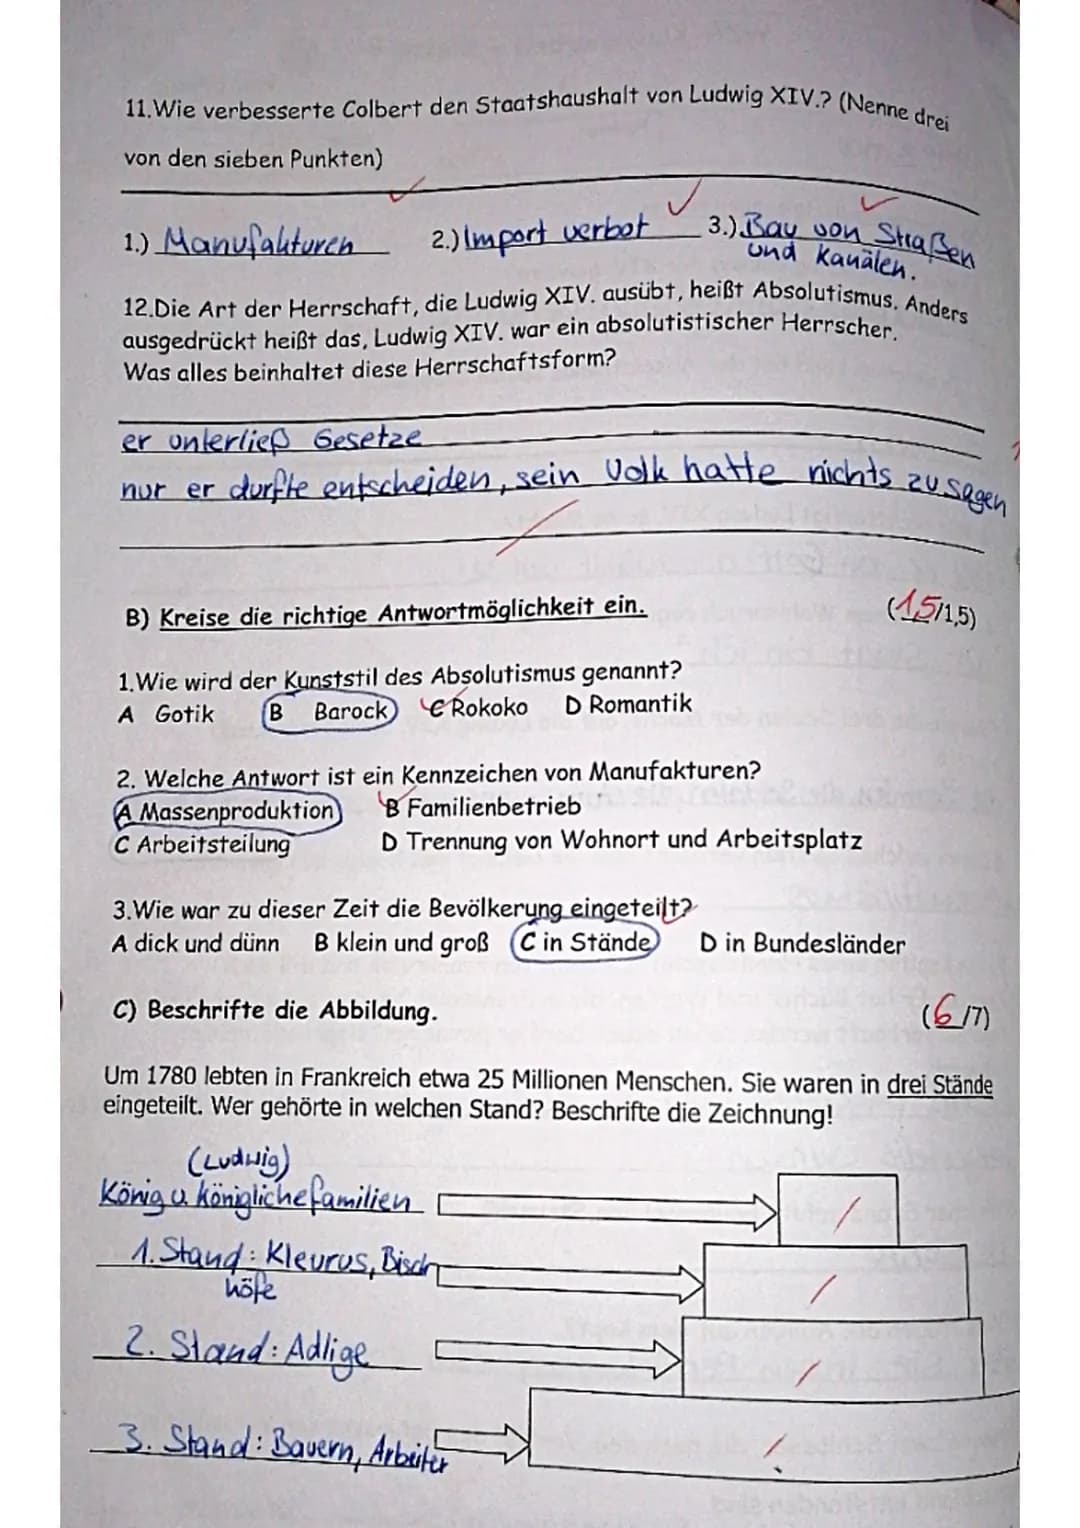 11.Wie verbesserte Colbert den Staatshaushalt von Ludwig XIV.? (Nenne drei
von den sieben Punkten)
1.) Manufakturen 2.) Import verbot 3.) Bau von Straßen
und Kanälen.
12.Die Art der Herrschaft, die Ludwig XIV. ausübt, heißt Absolutismus. Anders
ausgedrückt heißt das, Ludwig XIV. war ein absolutistischer Herrscher.
Was alles beinhaltet diese Herrschaftsform?
er unterließ Gesetze
nur er durfte entscheiden, sein Volk hatte nichts zu sagen
B) Kreise die richtige Antwortmöglichkeit ein. (1,5/1,5)
1.Wie wird der Kunststil des Absolutismus genannt?
A Gotik B Barock C Rokoko D Romantik
2. Welche Antwort ist ein Kennzeichen von Manufakturen?
A Massenproduktion B Familienbetrieb
C Arbeitsteilung D Trennung von Wohnort und Arbeitsplatz
3.Wie war zu dieser Zeit die Bevölkerung eingeteilt?
A dick und dünn B klein und groß C in Stände D in Bundesländer
C) Beschrifte die Abbildung. (6/7)
Um 1780 lebten in Frankreich etwa 25 Millionen Menschen. Sie waren in drei Stände
eingeteilt. Wer gehörte in welchen Stand? Beschrifte die Zeichnung!
(Ludwig)
König u. königliche familien
1. Stand: Kleurus, Bisch
höfe
2. Stand: Adlige
3. Stand: Bauern, Arbeiter